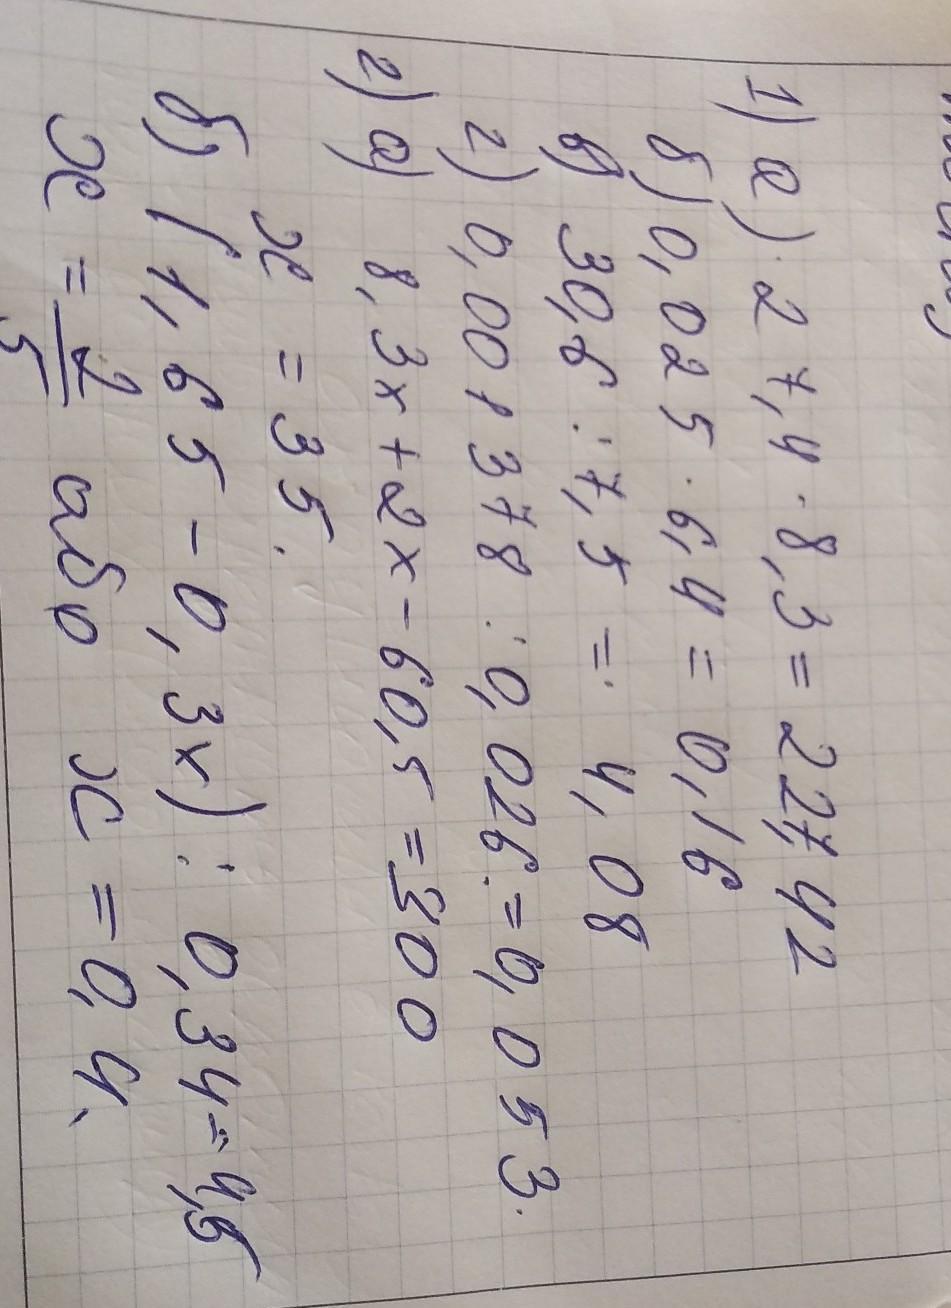 1) а) 27,4 · 8,3 = 227,42
б) 0,025 · 6,4 = 0,16
в) 30,6 : 7,5 = 4,08
г) 0,001378 : 0,026 = 0,053.
2) а) 8,3x + 2x - 60,5 = 300
x = 35.
б) (1,65 - 0,3x) : 0,34 = 4,5
x = 2/5 або x = 0,4.